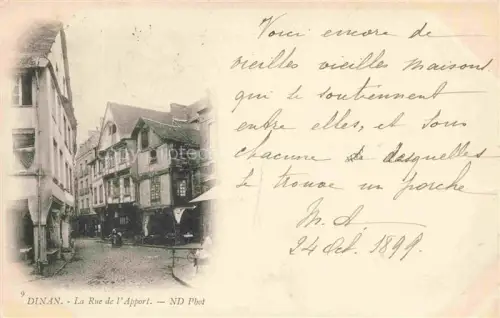 Voici encore de
vieilles vieilles maisons
qui se soutiennent
entre elles, et sous
chacune desquelles
se trouve un porche
M. A.
24 Oct. 1899
9 DINAN. - La Rue de l'Apport. - ND Phot